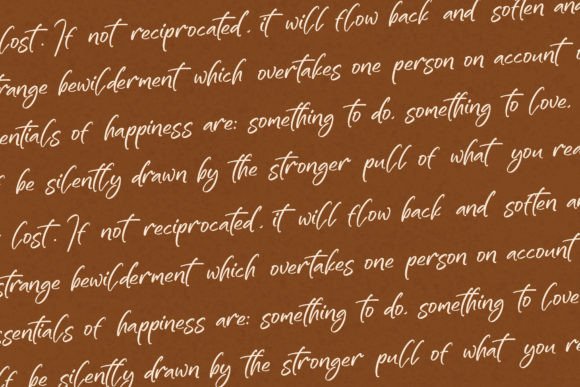 lost. If not reciprocated. it will flow back and soften and
range bewilderment which overtakes one person on account
entials of happiness are: something to do. something to love.
f be silently drawn by the stronger pull of what you rea
lost. If not reciprocated. it will flow back and soften an
strange bewilderment which overtakes one person on account
ssentials of happiness are: something to do. something to love
lf be silently drawn by the stronger pull of what you re